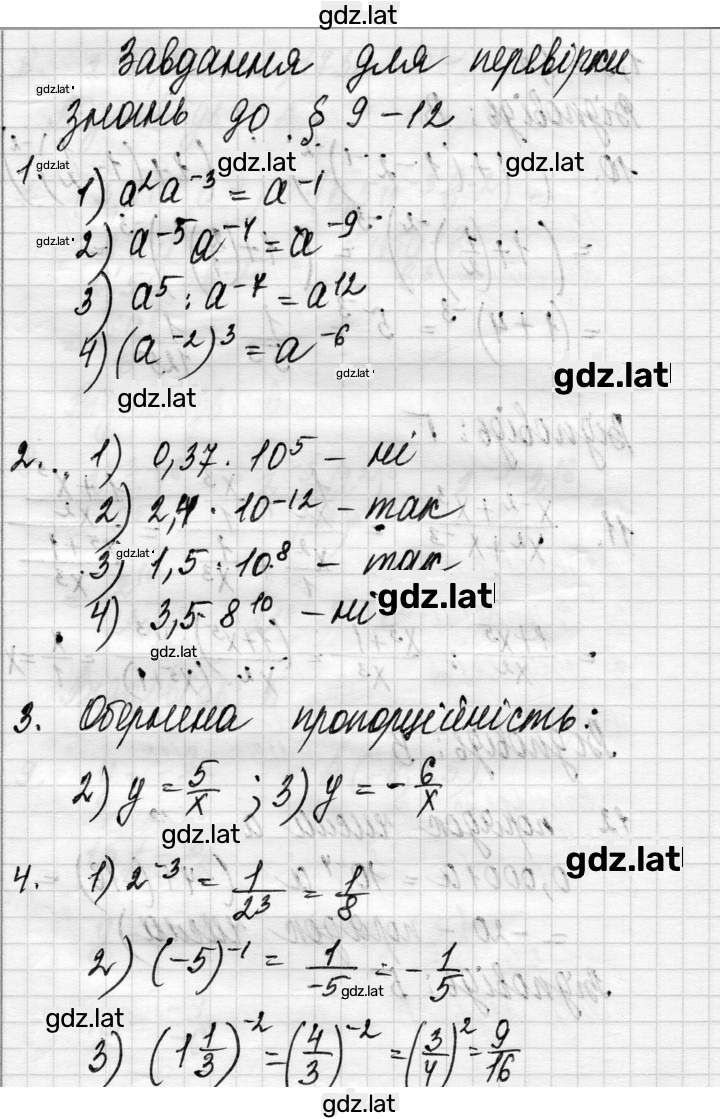 gdz.lat
Завдання для перевірки
gdz.lat
знань до § 9-12
gdz.lat gdz.lat gdz.lat
1. 1) a²a⁻³ = a⁻¹
gdz.lat
2) a⁻⁵a⁻⁴ = a⁻⁹
3) a⁵ : a⁻⁷ = a¹²
4) (a⁻²)³ = a⁻⁶
gdz.lat gdz.lat
gdz.lat
2. 1) 0,37 · 10⁵ – ні
2) 2,4 · 10⁻¹² – так
gdz.lat
3) 1,5 · 10⁸ – так
gdz.lat
4) 3,5 · 8¹⁰ – ні
gdz.lat
3. Обернена пропорційність:
2) y = 5/x ; 3) y = -6/x
gdz.lat
gdz.lat
4. 1) 2⁻³ = 1/2³ = 1/8
2) (-5)⁻¹ = 1/-5 = -1/5
gdz.lat
gdz.lat
3) (1 1/3)⁻² = (4/3)⁻² = (3/4)² = 9/16
gdz.lat